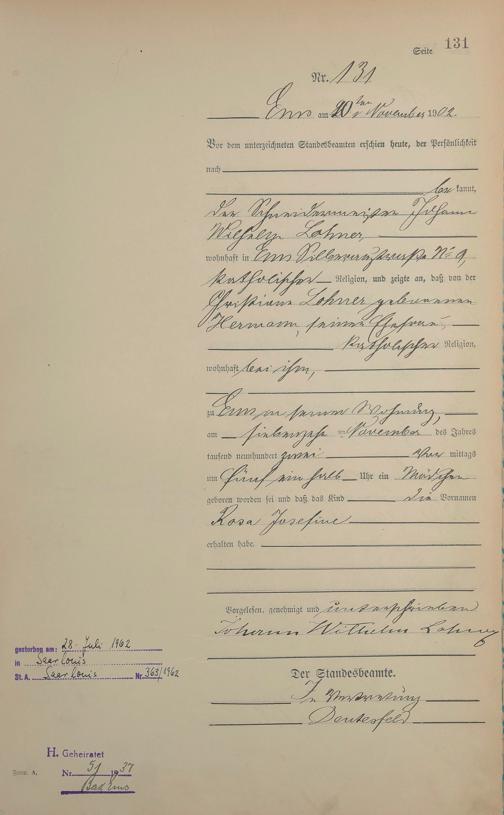 Seite 131
Nr. 131
Ems am 20ten November 1902.
Vor dem unterzeichneten Standesbeamten erschien heute, der Persönlichkeit
nach
be kannt,
der Schneidermeister Johann
Wilhelm Lohner,
wohnhaft in Ems Silberaustraße No 9,
katholischer Religion, und zeigte an, daß von der
Christiane Lohner geborenen
Hermann, seiner Ehefrau,
katholischer Religion,
wohnhaft bei ihm,
zu Ems in seiner Wohnung,
am siebenzehn November des Jahres
tausend neunhundert zwei Vor mittags
um fünf ein halb Uhr ein Mädchen
geboren worden sei und daß das Kind die Vornamen
Rosa Josefine
erhalten habe.
Vorgelesen, genehmigt und unterschrieben
Johann Wilhelm Lohner
Der Standesbeamte.
In Vertretung
gestorben am: 28. Juli 1962
in Saarlouis
St. A. Saarlouis Nr. 363/1962
H. Geheiratet
Nr. 51 1937
Bad Ems
Form. A.